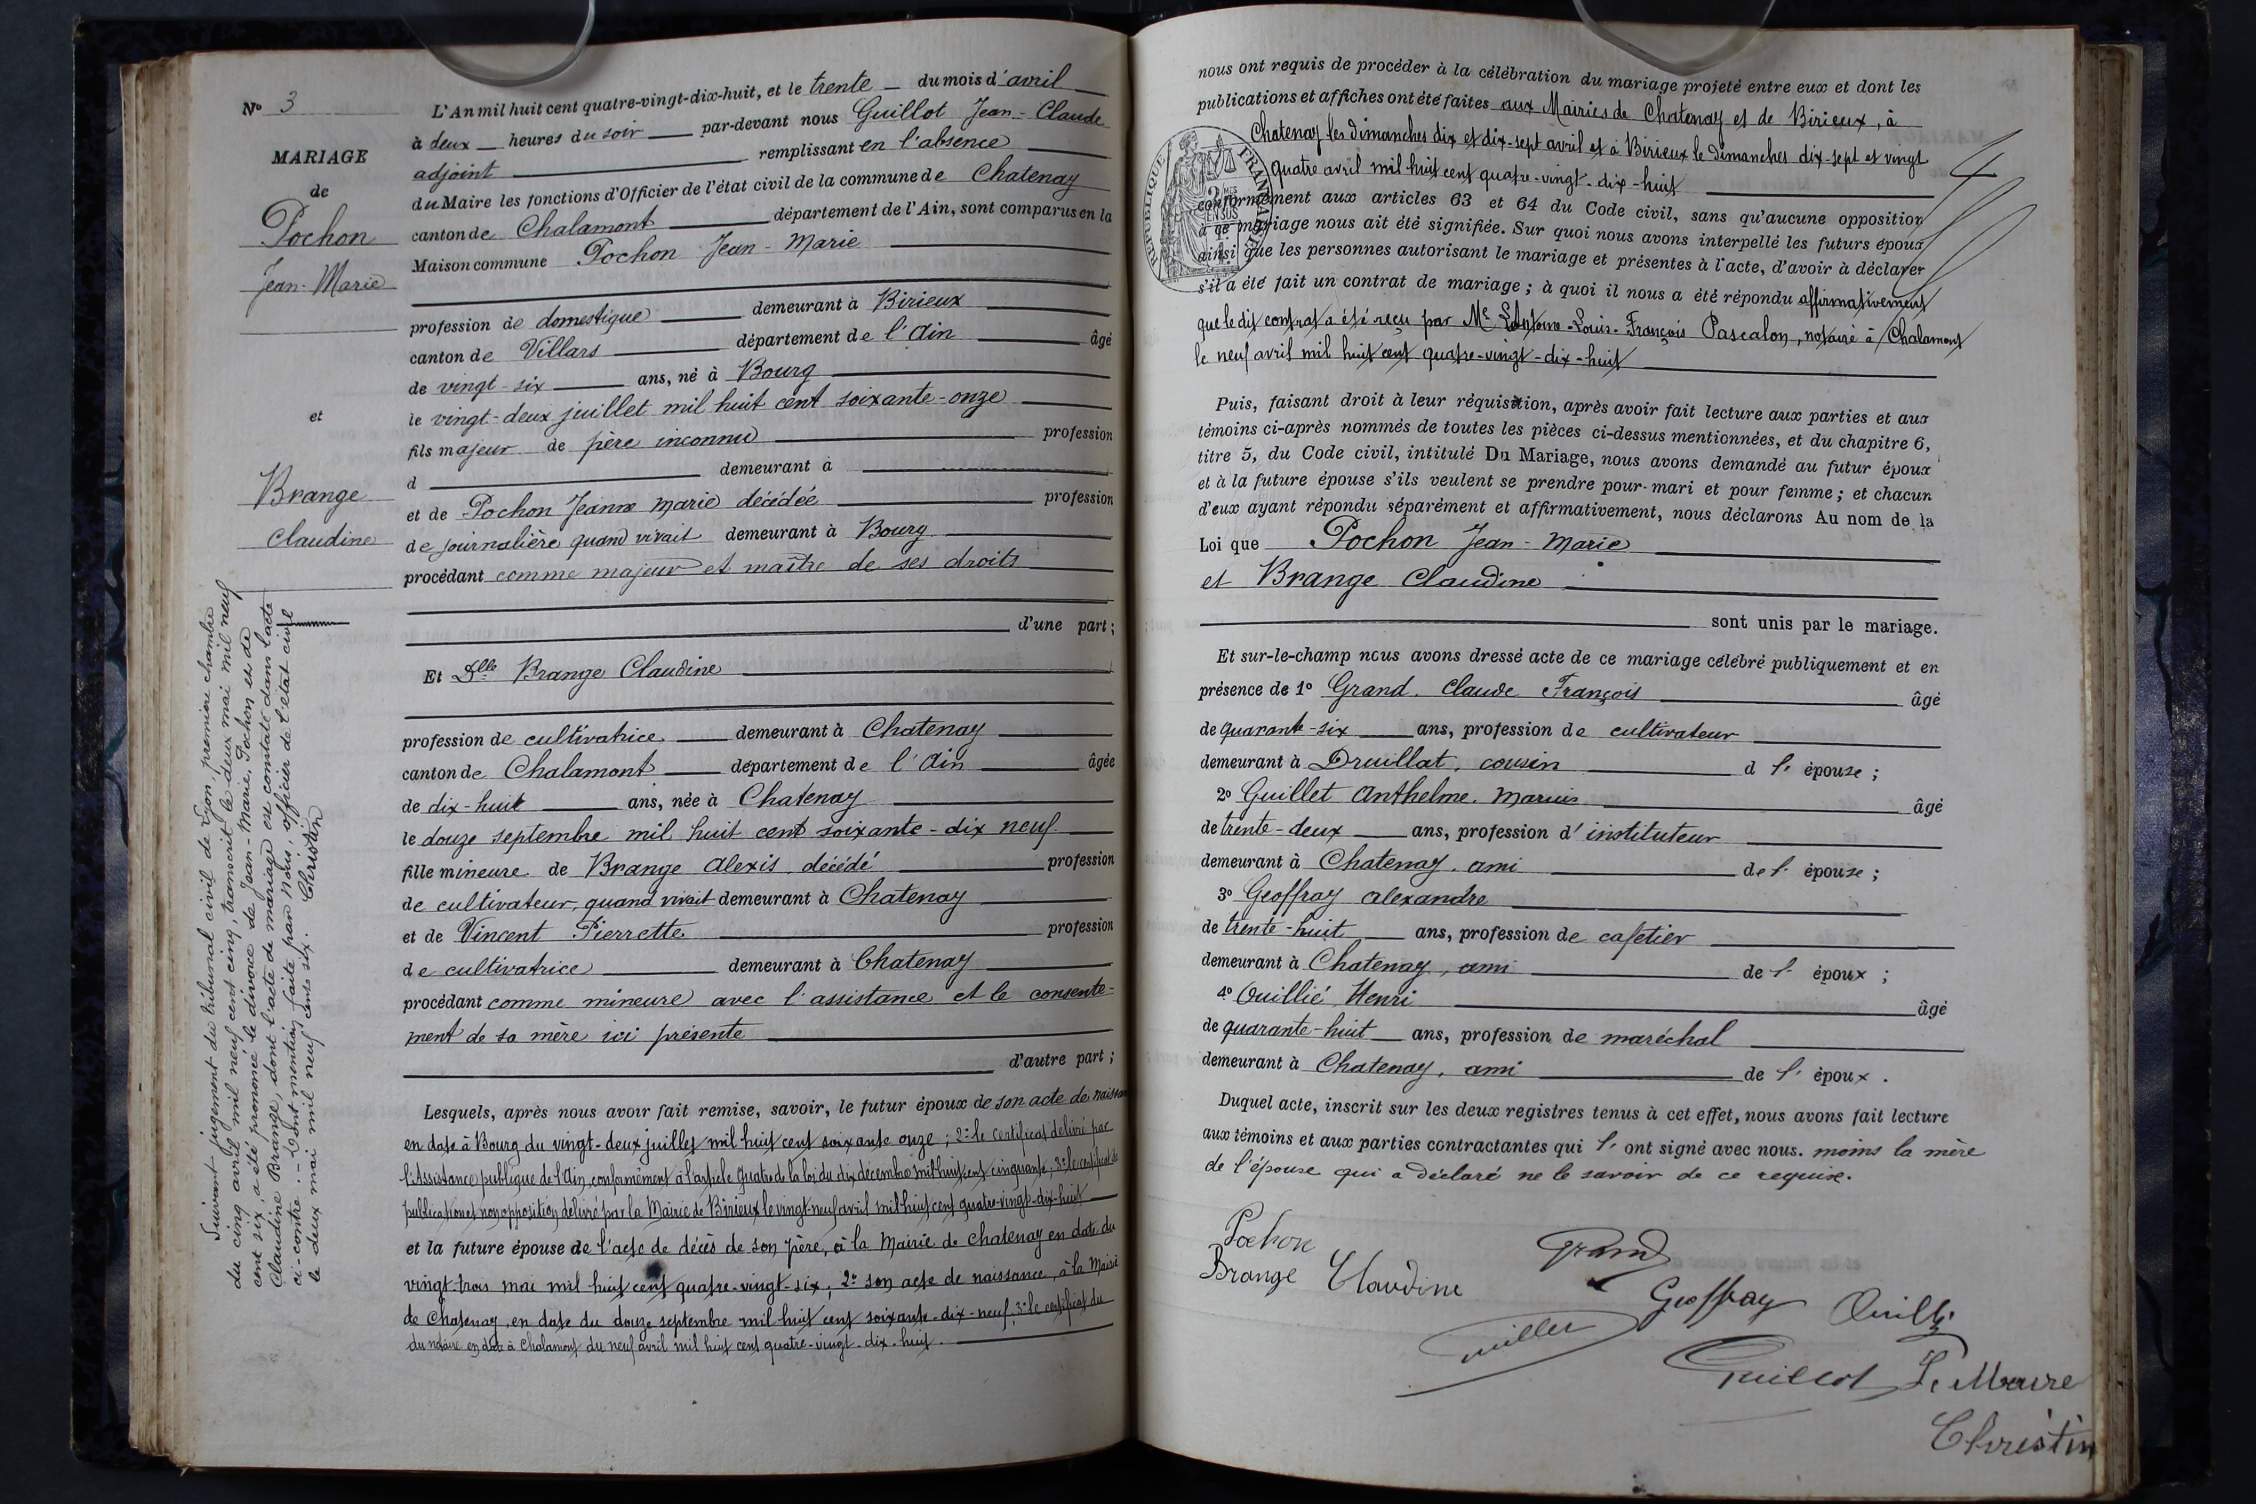 N° 3
MARIAGE
de
Pochon
Jean-Marie
et
Brange
Claudine
Suivant jugement du tribunal civil de Lyon, première chambre
du cinq avril mil neuf cent cinq transcrit le deux mai mil neuf
cent six, a été prononcé le divorce de Jean-Marie Pochon et de
Claudine Brange, dont l'acte de mariage est constaté dans l'acte
ci-contre. - Dont mention faite par Nous, officier de l'état civil
le deux mai mil neuf cent six. Christin
L'An mil huit cent quatre-vingt-dix-huit, et le trente du mois d'avril
à deux heures du soir par-devant nous Guillot Jean-Claude
adjoint remplissant en l'absence
du Maire les fonctions d'Officier de l'état civil de la commune de Chatenay
canton de Chalamont département de l'Ain, sont comparus en la
Maison commune Pochon Jean-Marie
profession de domestique demeurant à Birieux
canton de Villars département de l'Ain âgé
de vingt-six ans, né à Bourg
le vingt-deux juillet mil huit cent soixante-onze
fils majeur de père inconnu profession
d demeurant à
et de Pochon Jeanne Marie décédée profession
de journalière quand vivait demeurant à Bourg
procédant comme majeur et maître de ses droits
d'une part ;
Et Dlle Brange Claudine
profession de cultivatrice demeurant à Chatenay
canton de Chalamont département de l'Ain âgée
de dix-huit ans, née à Chatenay
le douze septembre mil huit cent soixante-dix neuf
fille mineure de Brange Alexis décédé profession
de cultivateur, quand vivait demeurant à Chatenay
et de Vincent Pierrette profession
de cultivatrice demeurant à Chatenay
procédant comme mineure avec l'assistance et le consente-
ment de sa mère ici présente
d'autre part ;
Lesquels, après nous avoir fait remise, savoir, le futur époux de son acte de naissan
en date à Bourg du vingt-deux juillet mil huit cent soixante onze ; 2° le certificat délivré par
l'Assistance publique de l'Ain, conformément à l'article quatre de la loi du dix décembre mil huit cent cinquante ; 3° le certificat de
publication et non opposition délivré par la Mairie de Birieux le vingt-neuf avril mil huit cent quatre-vingt-dix-huit
et la future épouse de l'acte de décès de son père, à la Mairie de Chatenay en date du
vingt-trois mai mil huit cent quatre-vingt-six ; 2° son acte de naissance, à la Mairie
de Chatenay, en date du douze septembre mil huit cent soixante-dix-neuf ; 3° le certificat du
du notaire en date à Chalamont du neuf avril mil huit cent quatre-vingt-dix-huit.
nous ont requis de procéder à la célébration du mariage projeté entre eux et dont les
publications et affiches ont été faites aux Mairies de Chatenay et de Birieux, à
Chatenay les dimanches dix et dix-sept avril et à Birieux le dimanches dix-sept et vingt
quatre avril mil huit cent quatre-vingt-dix-huit
conformément aux articles 63 et 64 du Code civil, sans qu'aucune opposition
à ce mariage nous ait été signifiée. Sur quoi nous avons interpellé les futurs époux
ainsi que les personnes autorisant le mariage et présentes à l'acte, d'avoir à déclarer
s'il a été fait un contrat de mariage ; à quoi il nous a été répondu affirmativement
que le dit contrat a été reçu par Me Antoine-Louis-François Pascalon, notaire à Chalamont
le neuf avril mil huit cent quatre-vingt-dix-huit
RÉPUBLIQUE FRANÇAISE
Puis, faisant droit à leur réquisition, après avoir fait lecture aux parties et aux
témoins ci-après nommés de toutes les pièces ci-dessus mentionnées, et du chapitre 6,
titre 5, du Code civil, intitulé Du Mariage, nous avons demandé au futur époux
et à la future épouse s'ils veulent se prendre pour mari et pour femme ; et chacun
d'eux ayant répondu séparément et affirmativement, nous déclarons Au nom de la
Loi que Pochon Jean-Marie
et Brange Claudine
sont unis par le mariage.
Et sur-le-champ nous avons dressé acte de ce mariage célébré publiquement et en
présence de 1° Grand. Claude François âgé
de quarante-six ans, profession de cultivateur
demeurant à Druillat, cousin d l' épouse ;
2° Guillet Anthelme. Marius âgé
de trente-deux ans, profession d'instituteur
demeurant à Chatenay. ami de l' épouse ;
3° Geoffray Alexandre
de trente-huit ans, profession de cafetier
demeurant à Chatenay, ami de l' époux ;
4° Ouillié Henri âgé
de quarante-huit ans, profession de maréchal
demeurant à Chatenay, ami de l' époux.
Duquel acte, inscrit sur les deux registres tenus à cet effet, nous avons fait lecture
aux témoins et aux parties contractantes qui l' ont signé avec nous. moins la mère
de l'épouse qui a déclaré ne le savoir de ce requise.
Pochon
Brange Claudine
Grand
Geoffray
Guillet
Guillot
Le Maire
Christin